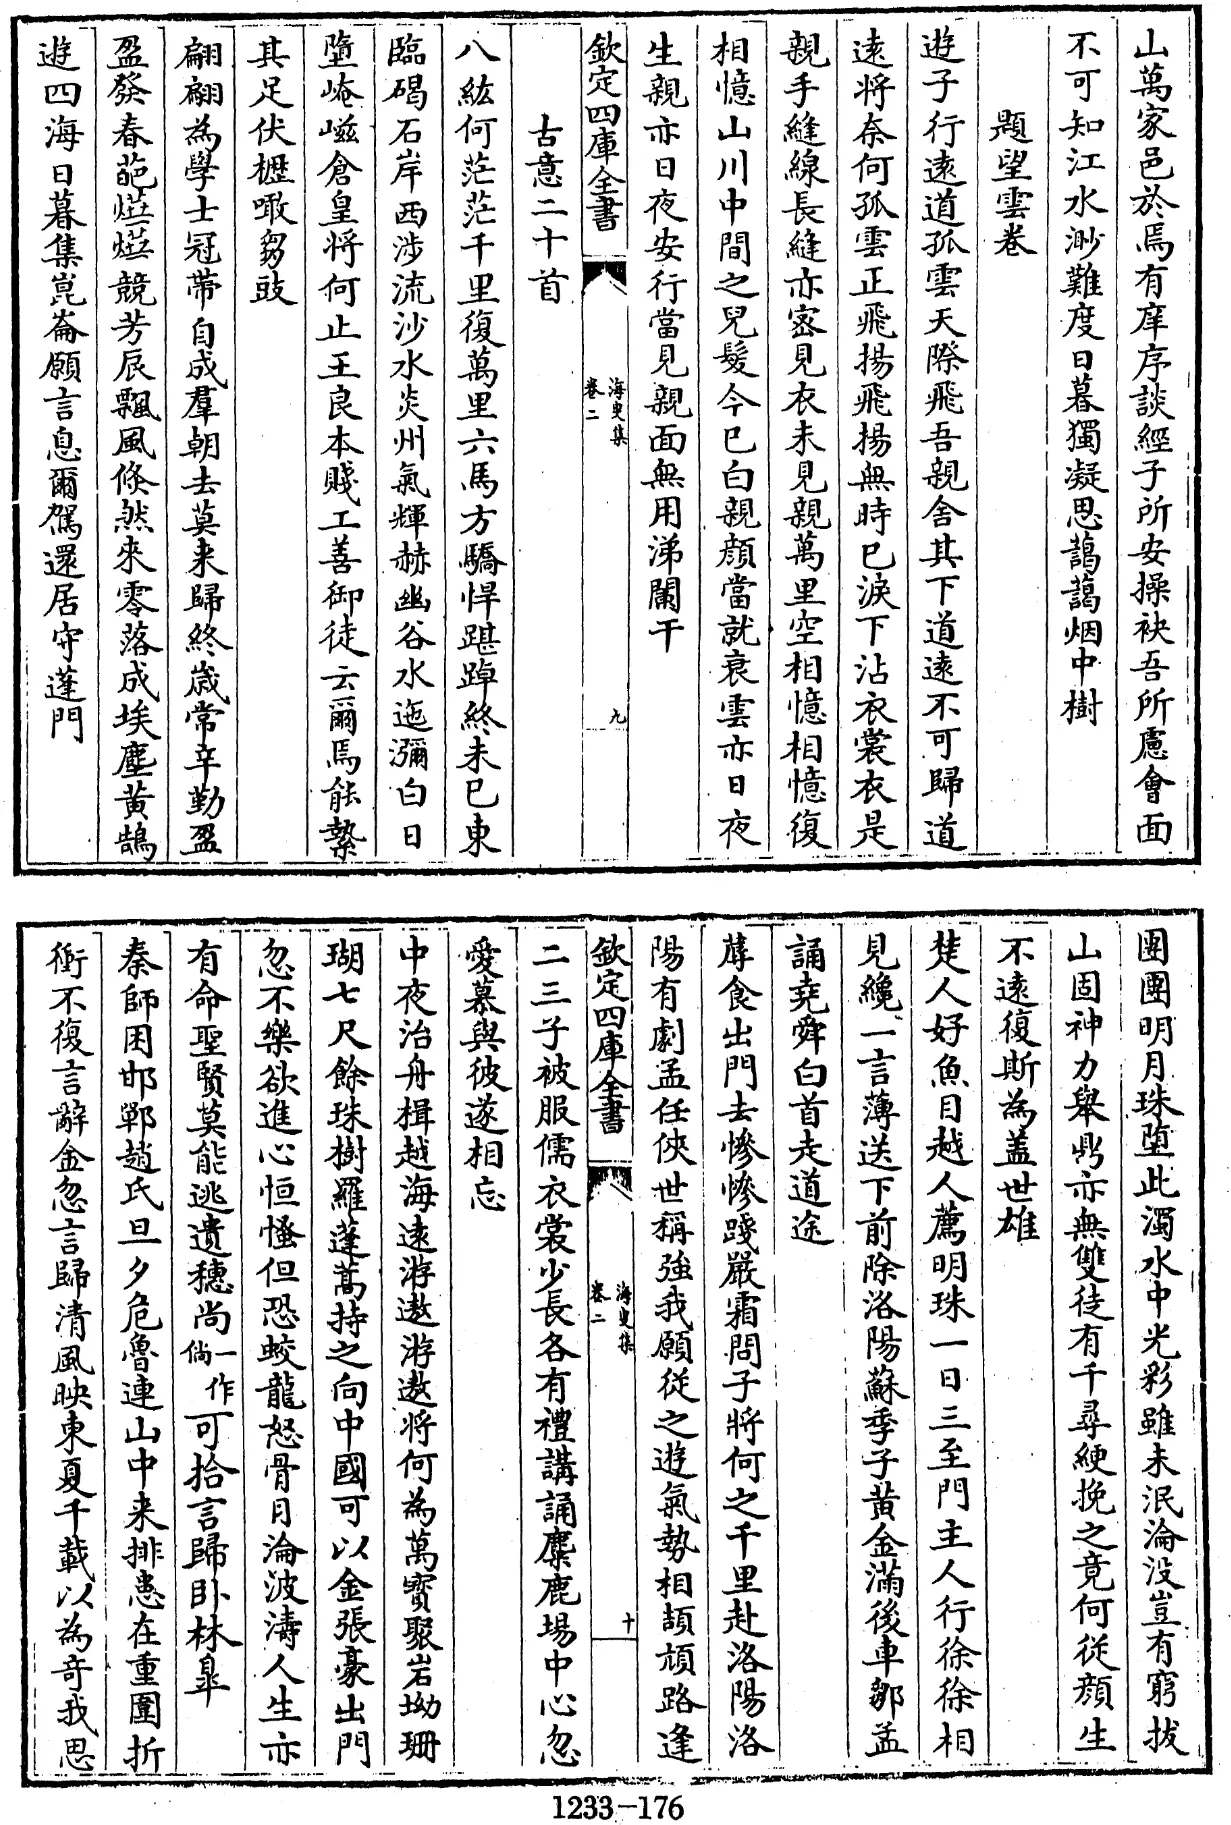 山萬家邑於焉有庠序談經子所安操袂吾所慮會面
不可知江水渺難度日暮獨凝思藹藹烟中樹
題望雲卷
遊子行遠道孤雲天際飛吾親舍其下道遠不可歸道
遠將奈何孤雲正飛揚飛揚無時已淚下沾衣裳衣是
親手縫線長縫亦密見衣未見親萬里空相憶相憶復
相憶山川中間之兒髮今已白親顏當就衰雲亦日夜
生親亦日夜安行當見親面無用涕闌干
欽定四庫全書
海叟集
卷二
九
古意二十首
八紘何茫茫千里復萬里六馬方驕悍踸踔終未已東
臨碣石岸西涉流沙水炎州氣輝赫幽谷水迤瀰白日
墮崦嵫倉皇將何止王良本賤工善御徒云爾焉能縶
其足伏櫪噉芻豉
翩翩為學士冠帶自成羣朝去莫来歸終歳常辛勤盈
盈發春葩熒熒競芳辰飄風倏然來零落成埃塵黃鵠
遊四海日暮集崑崙願言息爾駕還居守蓬門
團團明月珠墮此濁水中光彩雖未泯淪没豈有窮拔
山固神力舉鼎亦無雙徒有千尋綆挽之竟何從顏生
不遠復斯為蓋世雄
楚人好魚目越人薦明珠一日三至門主人行徐徐相
見纔一言薄送下前除洛陽蘇季子黃金滿後車鄒孟
誦堯舜白首走道途
蓐食出門去慘慘踐嚴霜問子將何之千里赴洛陽洛
陽有劇孟任俠世稱強我願從之遊氣勢相頡頏路逢
欽定四庫全書
海叟集
卷二
十
二三子被服儒衣裳少長各有禮講誦麋鹿場中心忽
愛慕與彼遂相忘
中夜治舟楫越海遠游遨游遨將何為萬寳聚岩坳珊
瑚七尺餘珠樹羅蓬蒿持之向中國可以金張豪出門
忽不樂欲進心恒慅但恐蛟龍怒骨目淪波濤人生亦
有命聖賢莫能逃遺穗尚一作倘可拾言歸卧林臯
秦師困邯鄲趙氏旦夕危魯連山中来排患在重圍折
衝不復言辭金忽言歸清風映東夏千載以為奇我思
1233-176